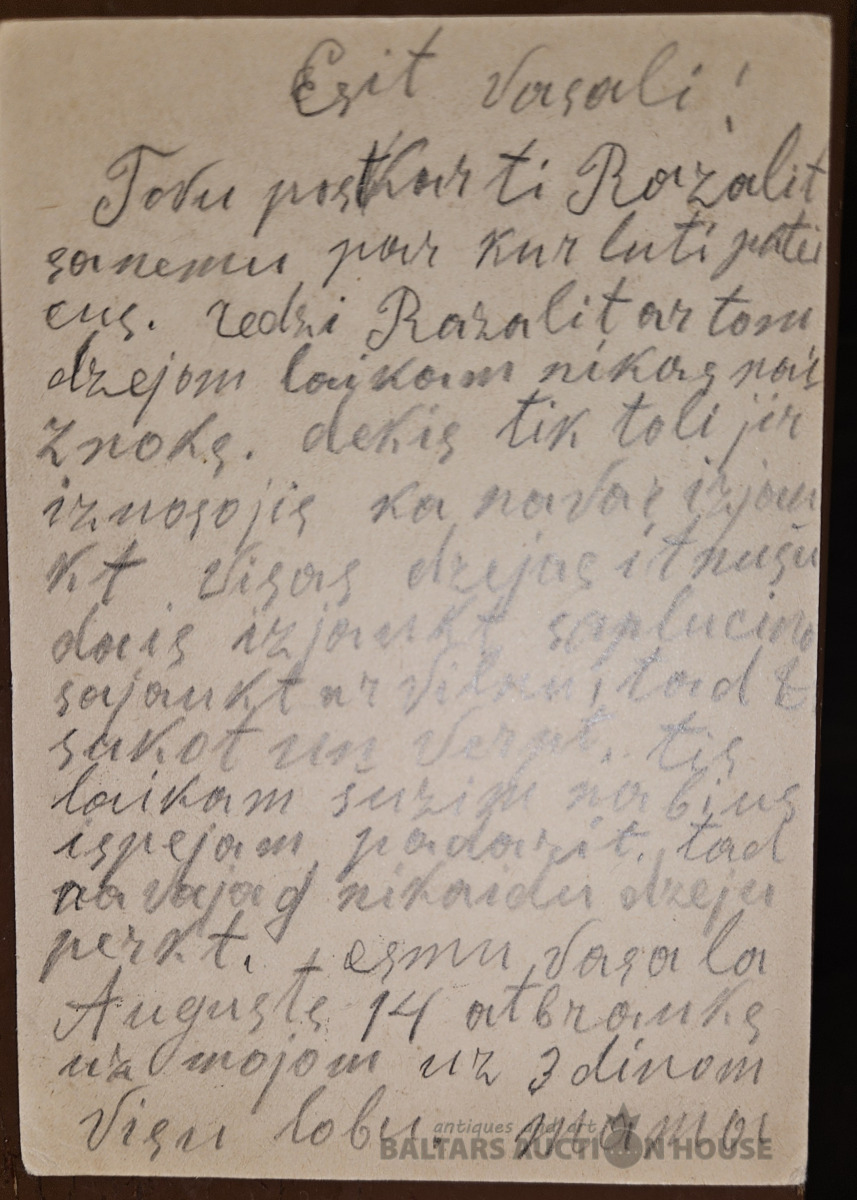 Esit vasali!
Tovu postkarti Razalit
sanemu par kur luti
cus. redzi Razalit ar tom
dzejom laikam nikas
znoks. dekis tik toli jir
iznosojis ka navar izjau
kt visas dzejas it
dais izjaukt
sajaukt ar Vilnu, tad
sukot un verpt. tis
laikam šuzim na bius
ispejam padarit. tad
na vajag nikaidu dzeju
perkt. esmu vasala
Augusts 14 atbrauks
uz mojom uz 3 dinom
Visu lobu. mama
antiques and art
BALTARS AUCTION HOUSE